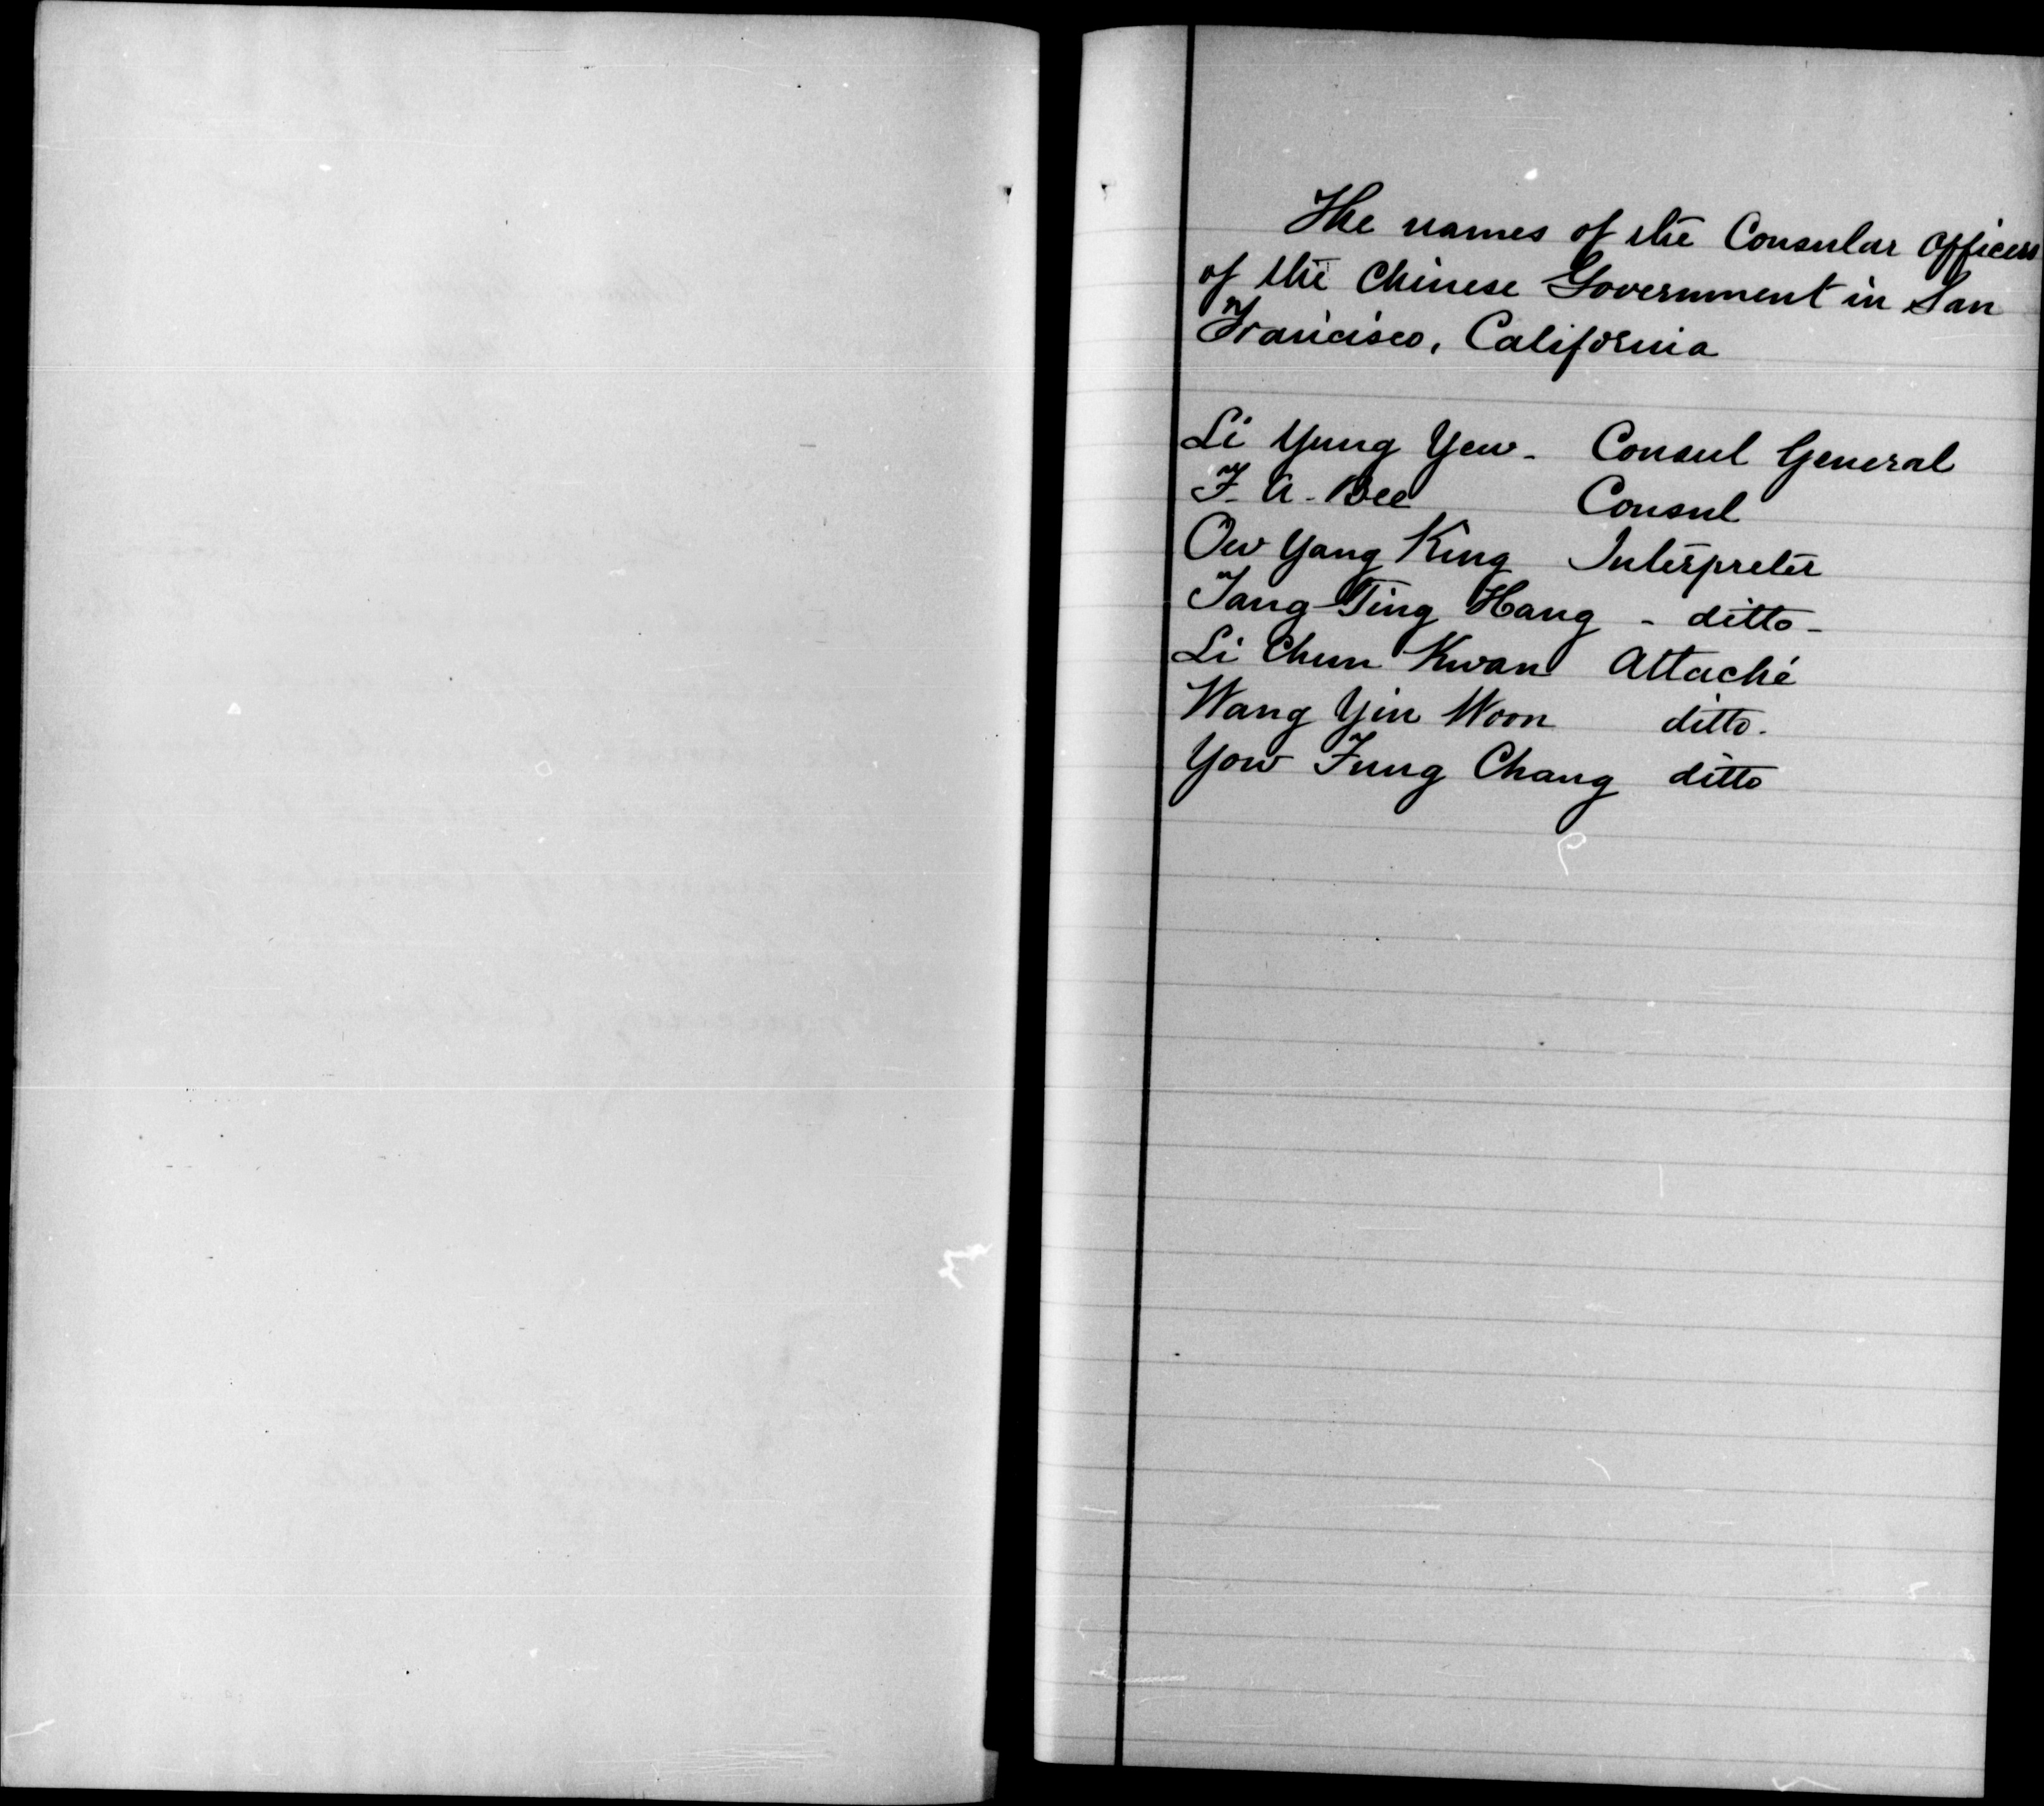 The names of the Consular Officers
of the Chinese Government in San
Francisco, California
Li Yung Yew - Consul General
F. A. Bee Consul
Ow Yang King Interpreter
Tang Ting Hang - ditto -
Li Chun Kwan Attaché
Wang Yin Woon ditto.
Yow Fung Chang ditto